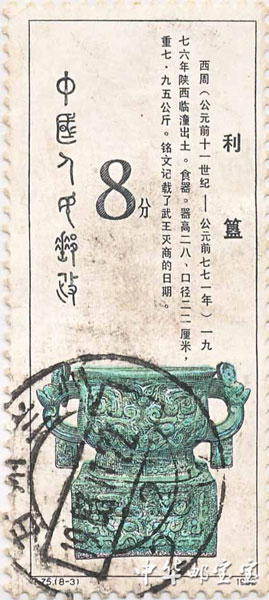 利簋
西周（公元前十一世纪——公元前七七一年）一九
七六年陕西临潼出土。食器。器高二八、口径二二厘米，
重七·九五公斤。铭文记载了武王灭商的日期。
8分
中國人民郵政
T.75.(8-3)